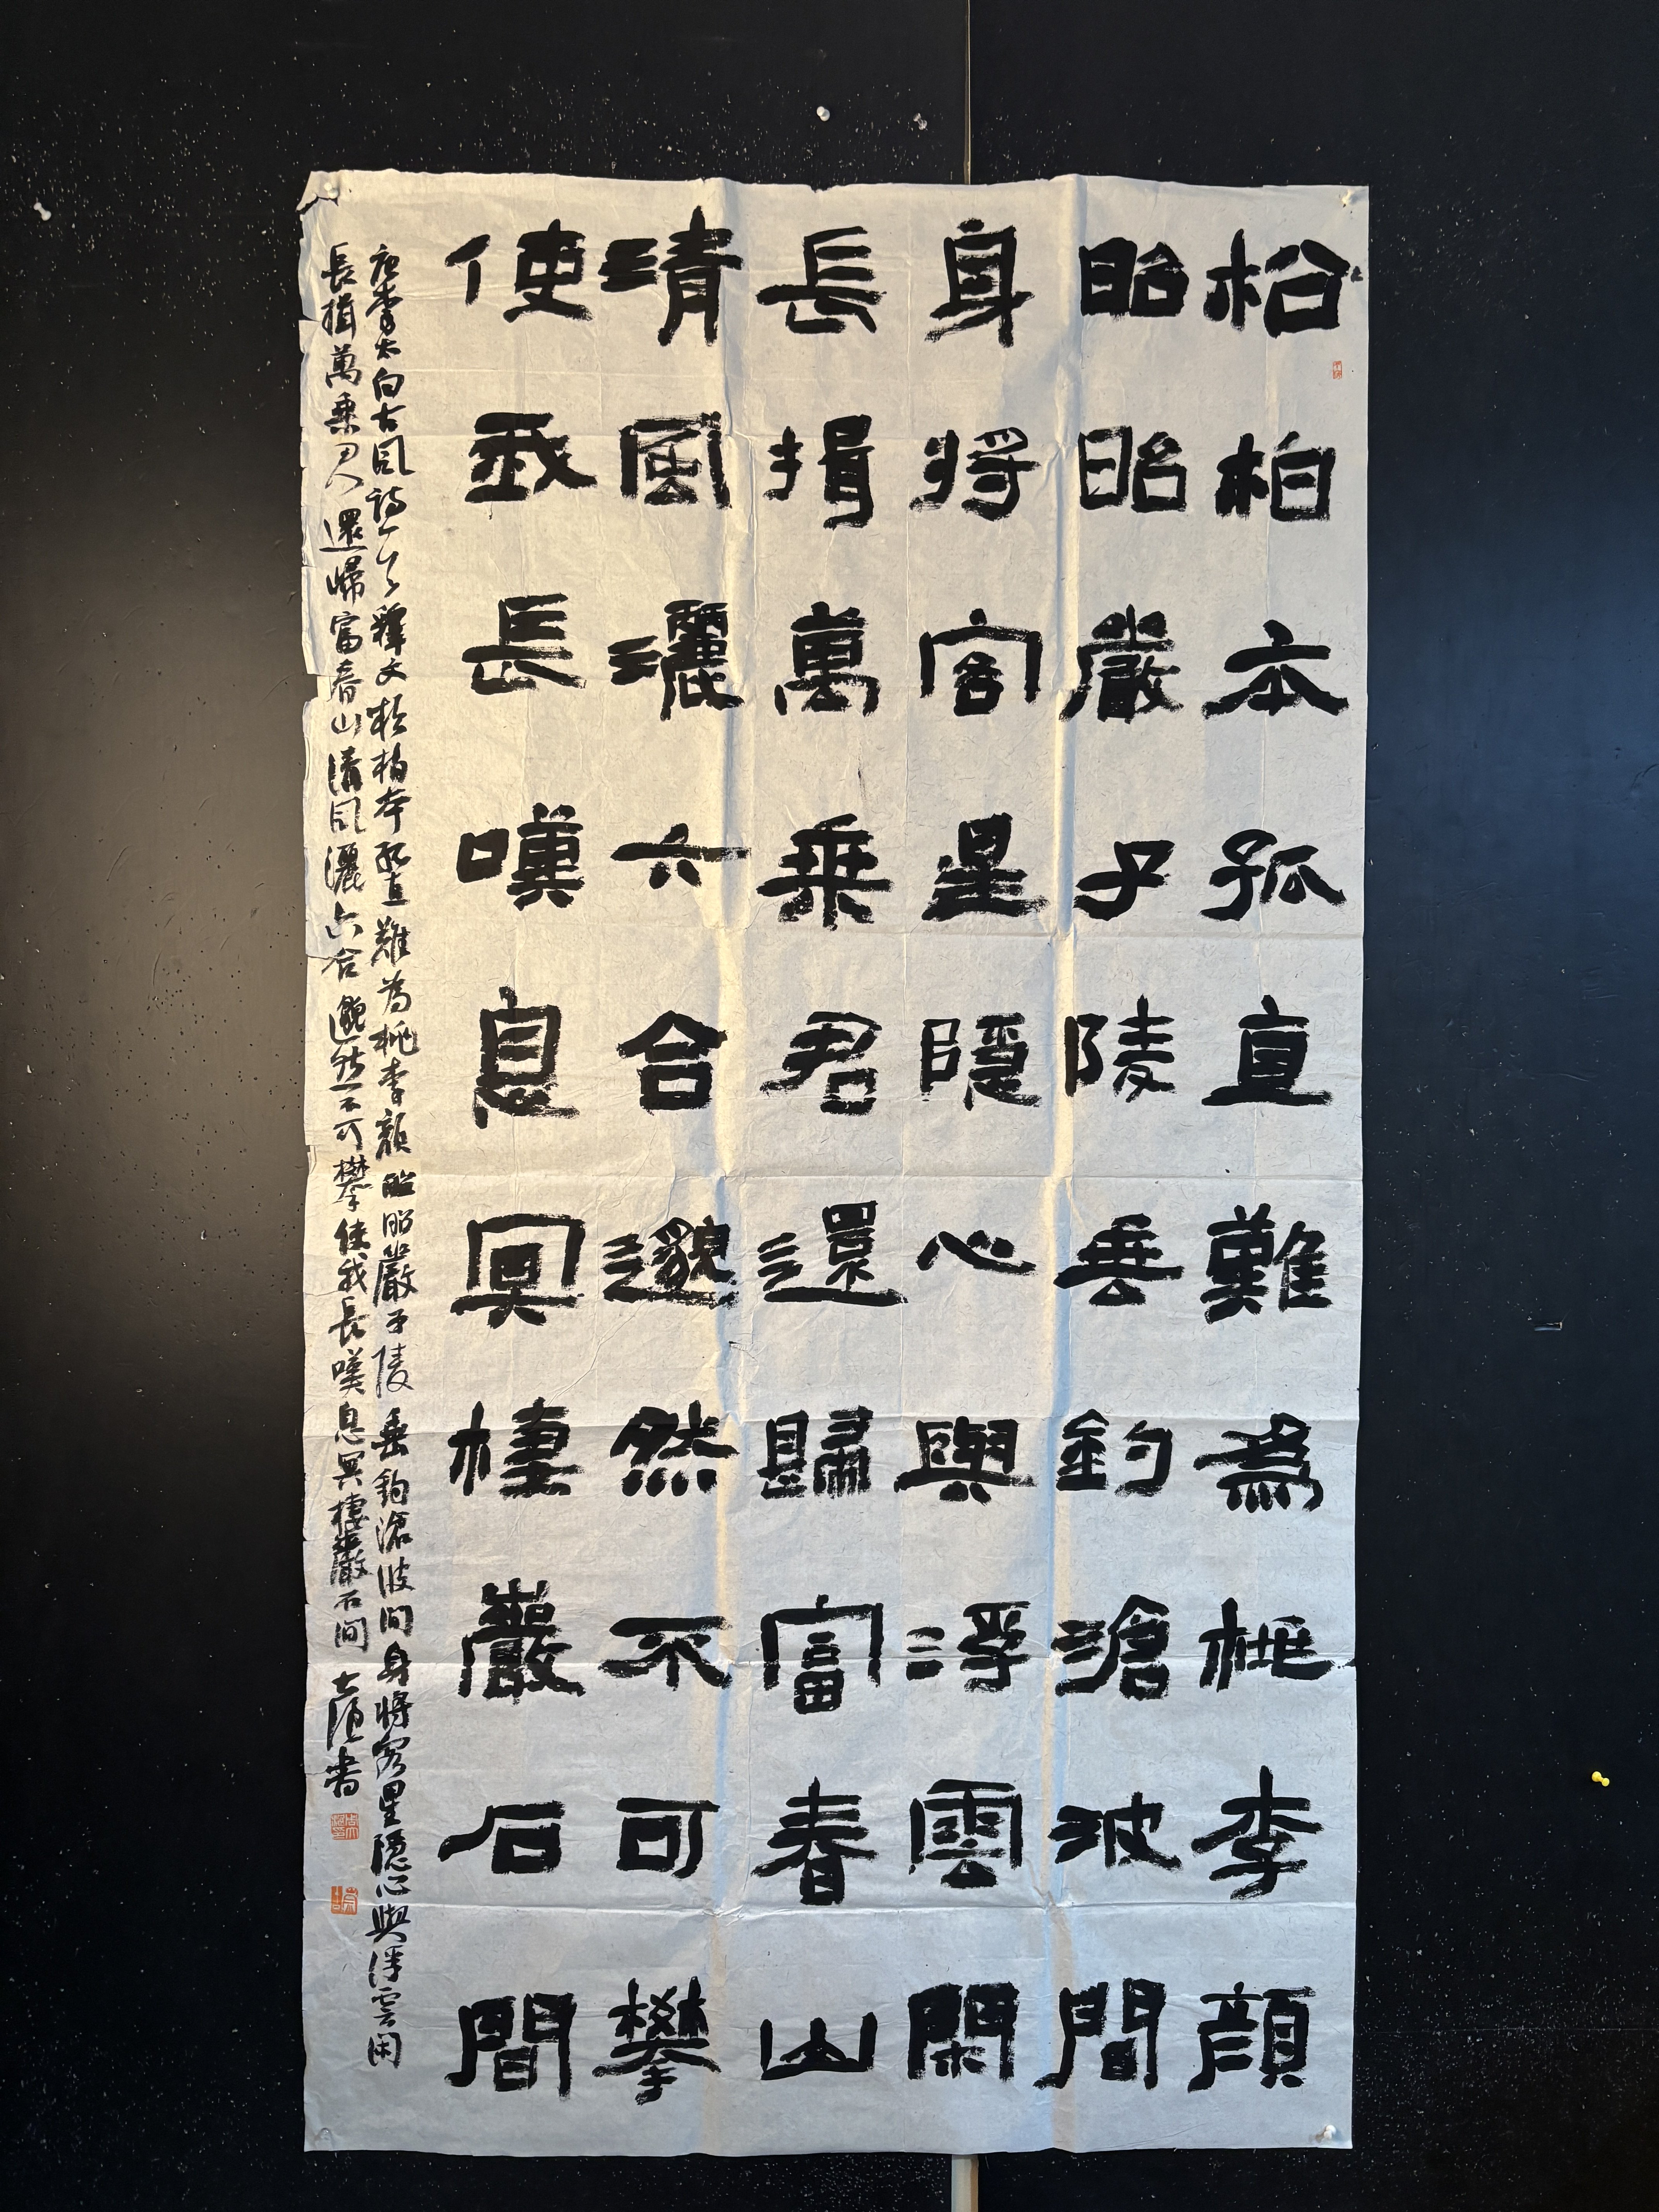 松柏本孤直難為桃李顏
昭昭嚴子陵垂釣滄波間
身將客星隱心與浮雲閑
長揖萬乘君還歸富春山
清風灑六合邈然不可攀
使我長嘆息冥棲巖石間
唐李太白古風詩一首釋文松柏本孤直難為桃李顏昭昭嚴子陵垂釣滄波間身將客星隱心與浮雲閑
長揖萬乘君還歸富春山清風灑六合邈然不可攀使我長嘆息冥棲巖石間 書